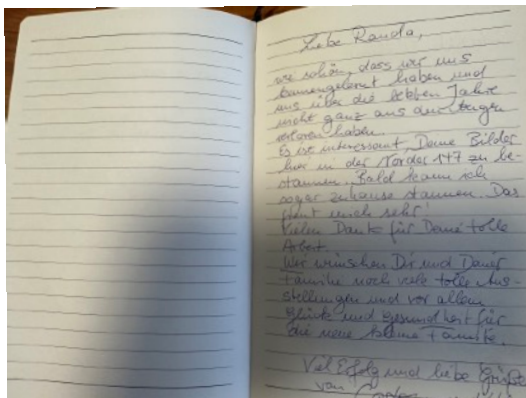 Liebe Randa,
wie schön, dass wir uns
kennengelernt haben und
uns über die letzten Jahre
nicht ganz aus den Augen
verloren haben.
Es ist interessant, Deine Bilder
hier in der Vorder 147 zu be-
staunen. Bald kann ich
sogar zuhause staunen. Das
freut mich sehr!
Vielen Dank für Deine tolle
Arbeit.
Wir wünschen Dir und Deiner
Familie noch viele tolle Aus-
stellungen und vor allem
Glück und Gesundheit für
die neue kleine Familie.
Viel Erfolg und liebe Grüße
von